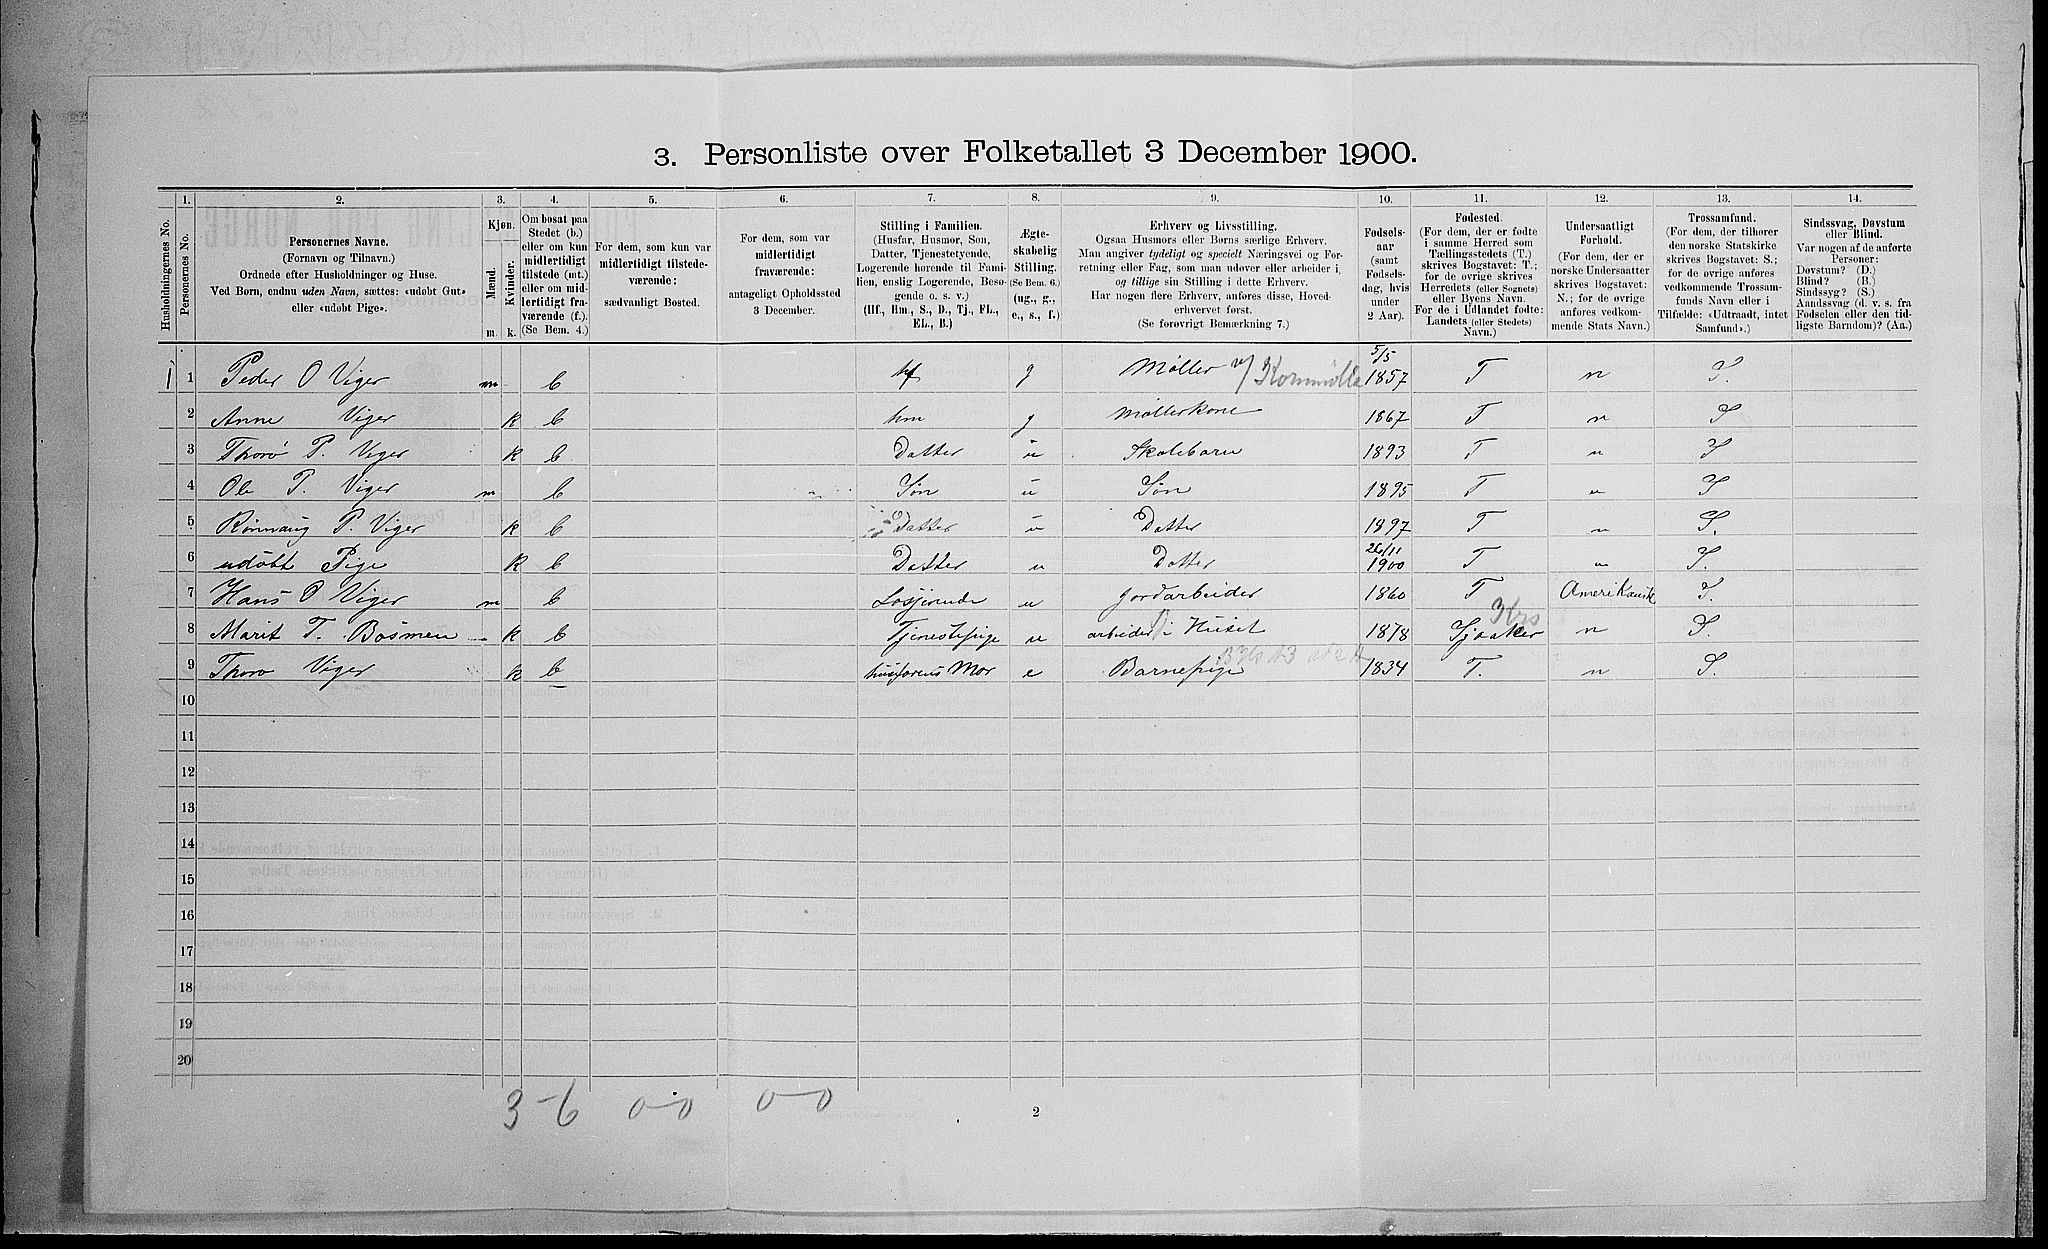 3. Personliste over Folketallet 3 December 1900.
Husholdningernes No.
1. Personernes No.
2. Personernes Navne. (Fornavn og Tilnavn.) Ordnede efter Husholdninger og Huse. Ved Børn, endnu uden Navn, sættes: «udøbt Gut» eller «udøbt Pige».
3. Kjøn. Mænd. m. Kvinder. k.
4. Om bosat paa Stedet (b.) eller om kun midlertidigt tilstede (mt.) eller om midlertidigt fraværende (f.). (Se Bem. 4.)
5. For dem, som kun var midlertidigt tilstedeværende: sædvanligt Bosted.
6. For dem, som var midlertidigt fraværende: antageligt Opholdssted 3 December.
7. Stilling i Familien. (Husfar, Husmor, Søn, Datter, Tjenestetyende, Logerende hørende til Familien, enslig Logerende, Besøgende o. s. v.) (Hf., Hm., S., D., Tj., FL., EL., B.)
8. Ægteskabelig Stilling. (Se Bem. 6.) (ug., g., e., s., f.)
9. Erhverv og Livsstilling. Ogsaa Husmors eller Børns særlige Erhverv. Man angiver tydeligt og specielt Næringsvei og Forretning eller Fag, som man udøver eller arbeider i, og tillige sin Stilling i dette Erhverv. Har nogen flere Erhverv, anføres disse, Hovederhvervet først. (Se forøvrigt Bemærkning 7.)
10. Fødselsaar (samt Fødselsdag, hvis under 2 Aar).
11. Fødested. (For dem, der er fødte i samme Herred som Tællingsstedets (T.) skrives Bogstavet: T.; for de øvrige skrives Herredets (eller Sognets) eller Byens Navn. For de i Udlandet fødte: Landets (eller Stedets) Navn.)
12. Undersaatligt Forhold. (For dem, der er norske Undersaatter skrives Bogstavet: N.; for de øvrige anføres vedkommende Stats Navn.)
13. Trossamfund. (For dem, der tilhører den norske Statskirke skrives Bogstavet: S.; for de øvrige anføres vedkommende Trossamfunds Navn eller i Tilfælde: «Udtraadt, intet Samfund».)
14. Sindssvag, Døvstum eller Blind. Var nogen af de anførte Personer: Døvstum? (D.) Blind? (B.) Sindssyg? (S.) Aandssvag (d. v. s. fra Fødselen eller den tidligste Barndom)? (Aa.)
1 1 Peder O Viger m b hf g Møller v/ Kornmølle 5/5 1857 T n S.
2 Anne Viger k b hm g Møllerkone 1867 T n S
3 Thorø P. Viger k b Datter u Skolebarn 1893 T n S
4 Ole P. Viger m b Søn u Søn 1895 T n S
5 Rønnaug P. Viger k b Datter u Datter 1897 T n S.
6 udøbt Pige k b Datter u Datter 26/11 1900 T n S.
7 Hans O Viger m b Losjerende u Jordarbeider 1860 T Amerikansk S.
8 Marit T. Bøsmen k b Tjenestepige u arbeider i Huset 1878 Sjaaker Krs n S.
9 Thoro Viger k b husfarens Mor e Barnepige 1834 T. n S.
10
11
12
13
14
15
16
17
18
19
20
3-6 0-0 0-0
2